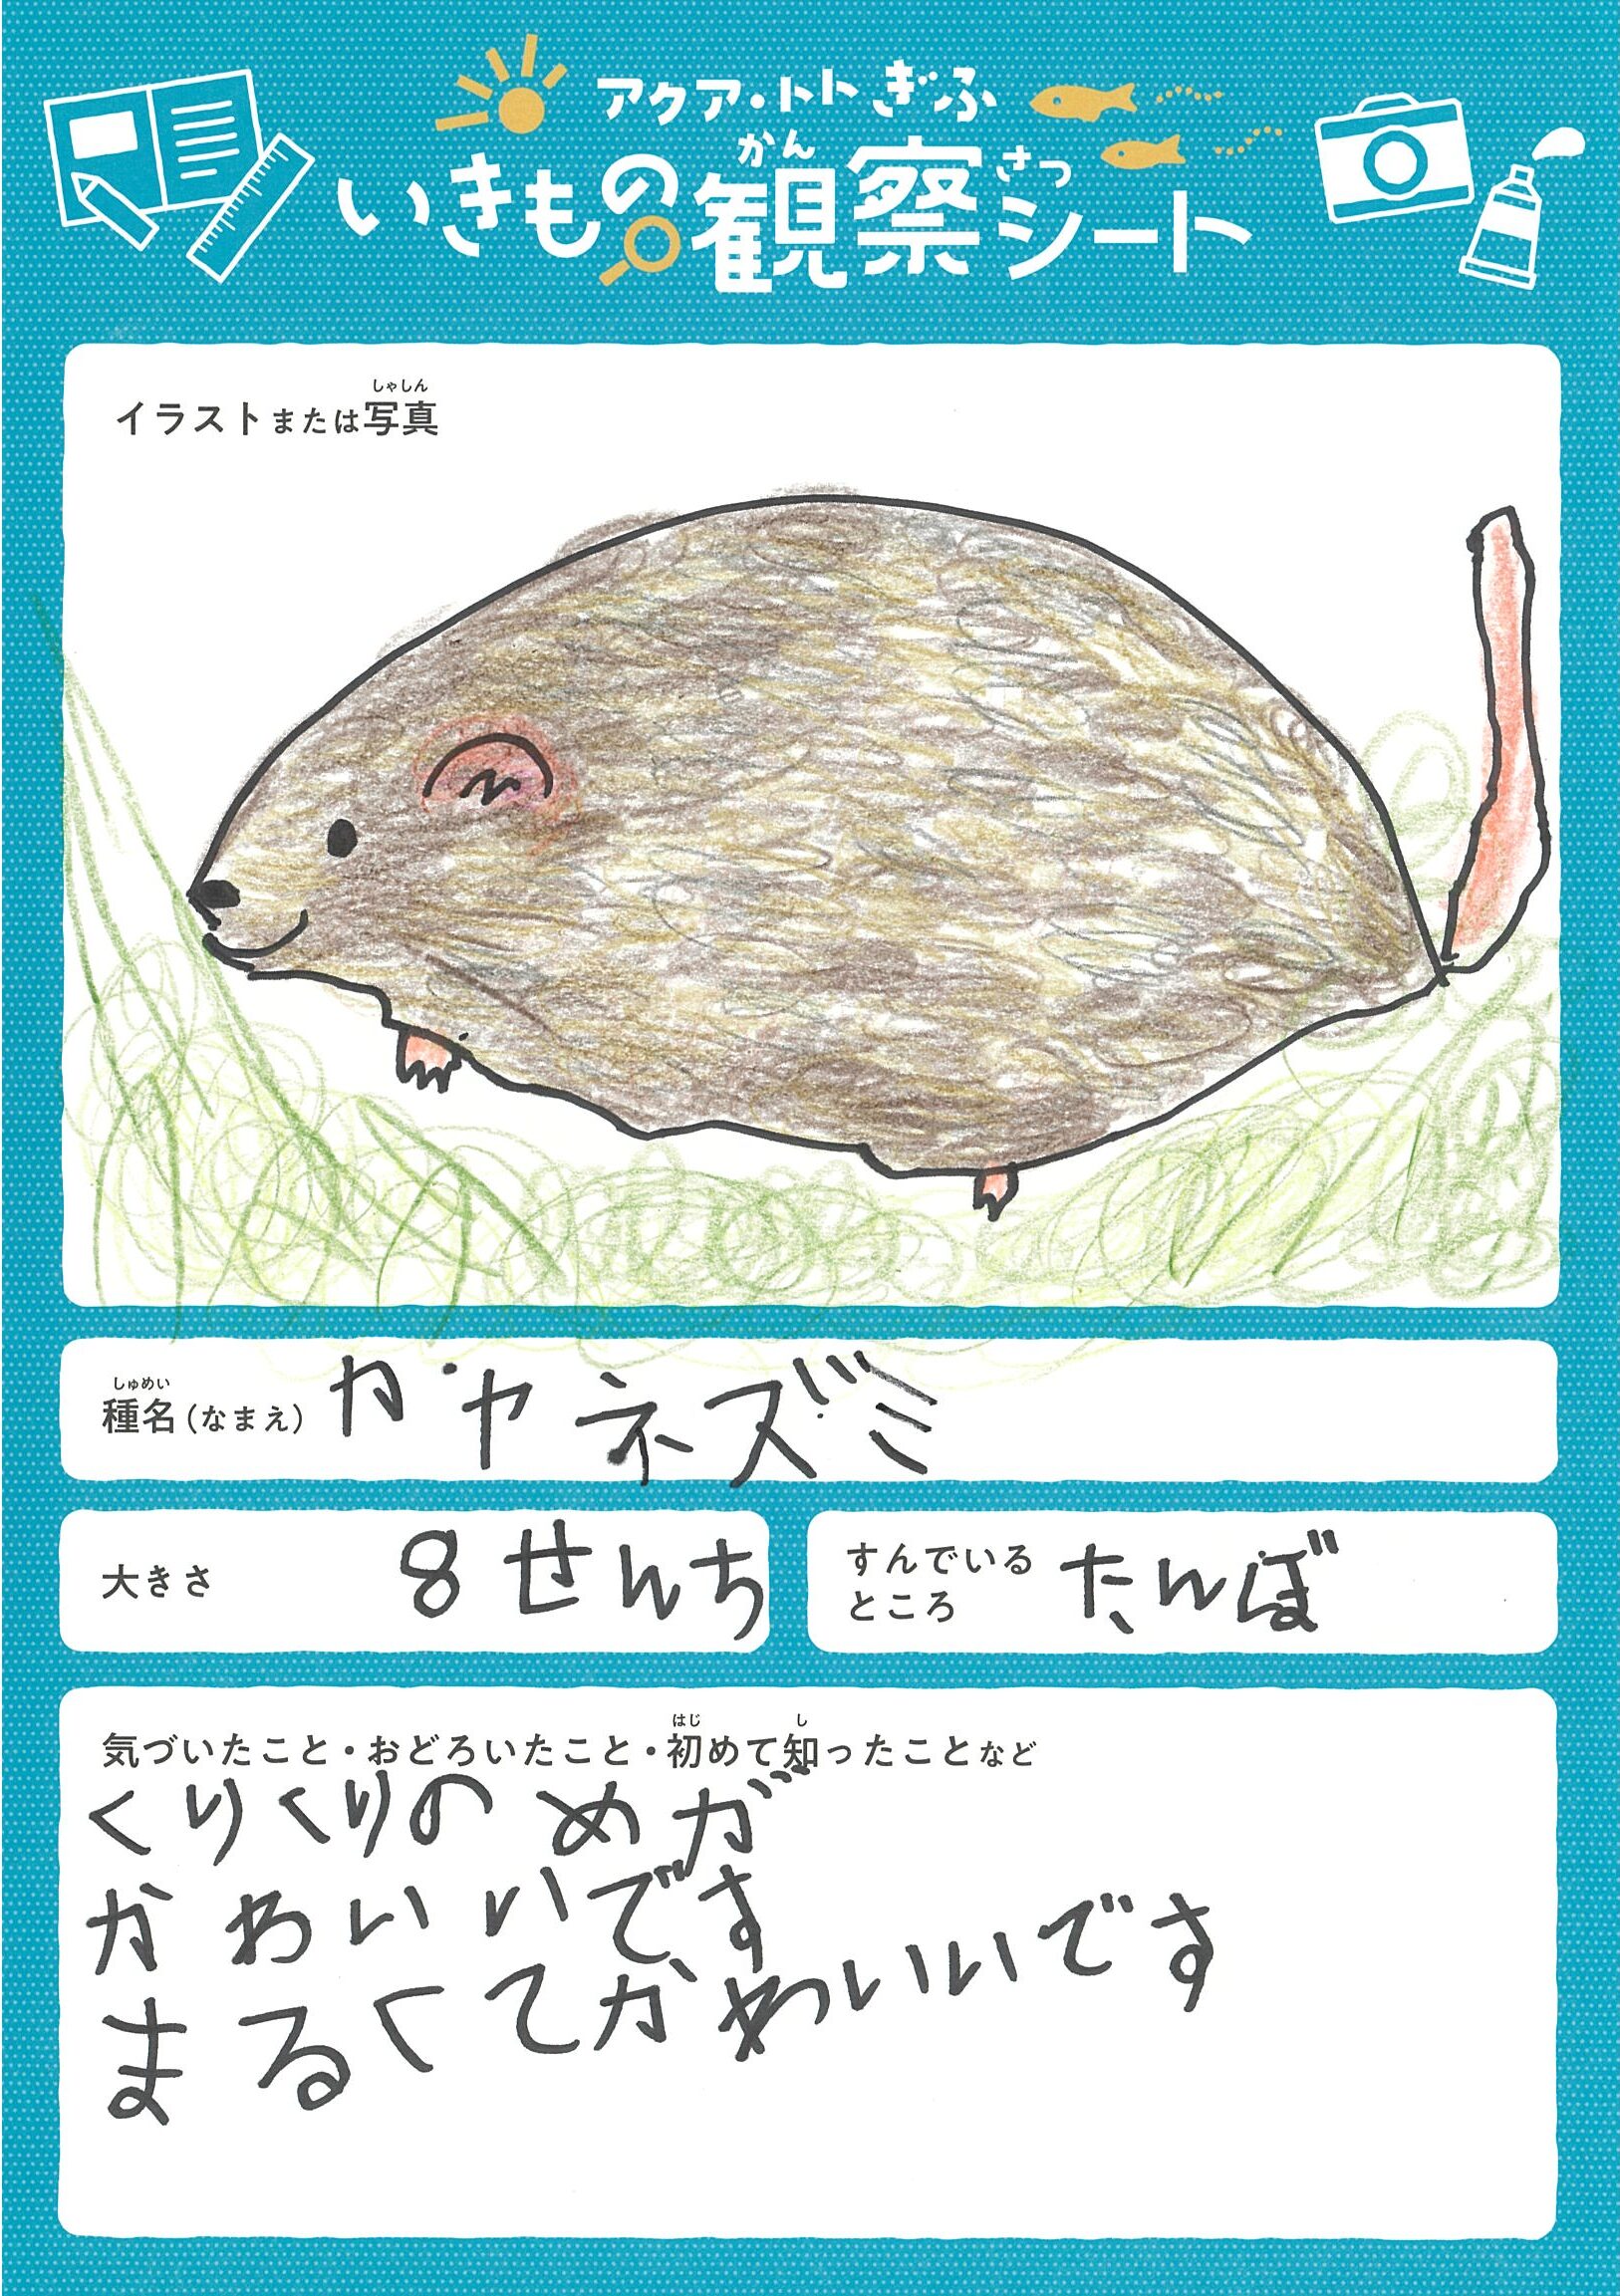 アクア・トト ぎふ
いきもの観察シート
かん さつ
しゃしん
イラストまたは写真
しゅめい
種名(なまえ) カヤネズミ
大きさ 8せんち
すんでいる
ところ たんぼ
はじ し
気づいたこと・おどろいたこと・初めて知ったことなど
くりくりの めが
かわいいです
まるくてかわいいです